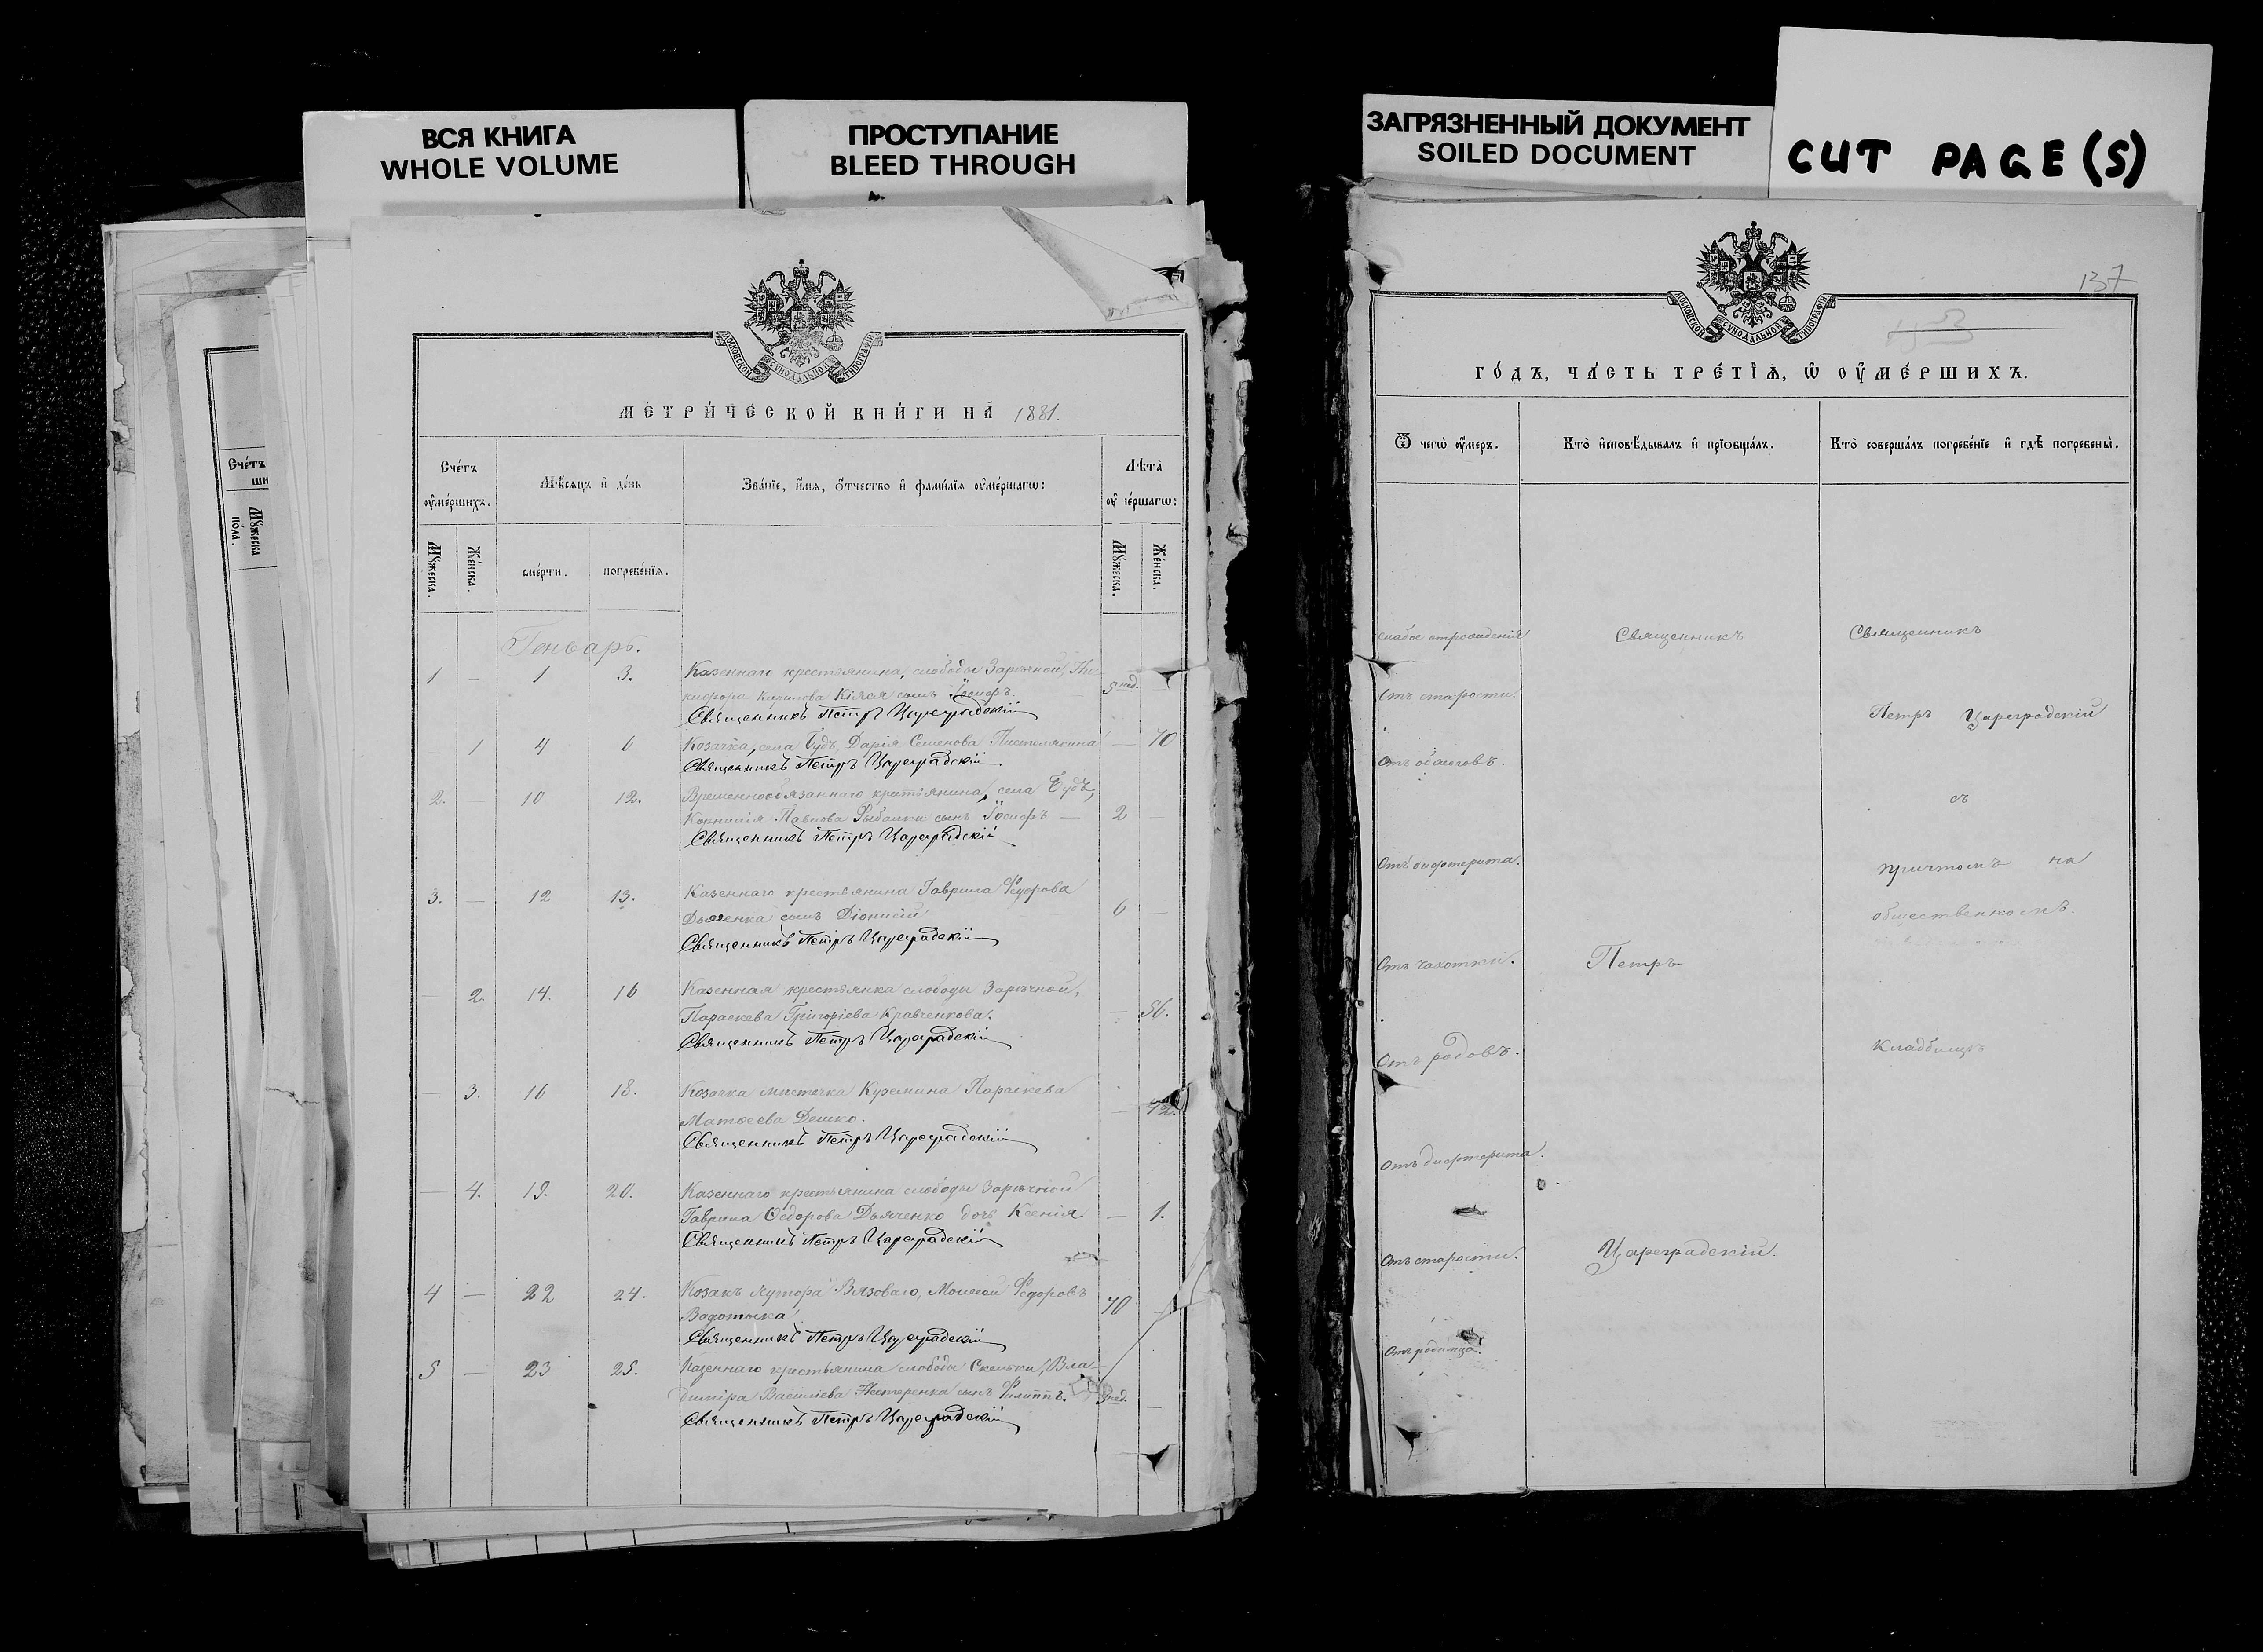 ВСЯ КНИГА
WHOLE VOLUME
ПРОСТУПАНИЕ
BLEED THROUGH
ЗАГРЯЗНЕННЫЙ ДОКУМЕНТ
SOILED DOCUMENT
CUT PAGE(S)
Сче́тъ
Мꙋ́жеска
по́ла.
МОСКОВСКОЙ СѴНОДАЛЬНОЙ ТИПОГРАФІИ
МЕТРИ́ЧЕСКОЙ КНИ́ГИ НА̀ 1881.
Сче́тъ ᲂу҆ме́ршихъ.
Мѣ́сѧцъ и҆ де́нь
Зва́нїе, и҆́мѧ, ѻ҆́тчество и҆ фамі́лїѧ ᲂу҆ме́ршагѡ:
Лѣ́та
Мꙋ́жеска.
Же́нска.
сме́рти.
погребе́нїѧ.
Мꙋ́жеска.
Же́нска.
Генварь.
1 — 1 3. Казеннаго крестьянина, слободы Заречной, Ни-
кифора Кирилова Кіяся сынъ Іосифъ. 5 нед. —
Священникъ Петръ Цареградскій
— 1 4 6 Козачка, села Будъ, Дарія Семенова — 70
Священникъ Петръ Цареградскій
2. — 10 12. Временнообязаннаго крестьянина, села Будъ,
Корнилія Павлова Рыбалки сынъ Іосифъ — 2 —
Священникъ Петръ Цареградскій
3. — 12 13. Казеннаго крестьянина Гаврила Федорова
Дьяченка сынъ Діонисій 6 —
Священникъ Петръ Цареградскій
— 2. 14. 16 Казенная крестьянка слободы Заречной,
Параскева Григоріева Кравченкова. — 56.
Священникъ Петръ Цареградскій
— 3. 16 18. Козачка местечка Куземина Параскева
Матѳеева Дешко. — 42.
Священникъ Петръ Цареградскій
— 4. 19. 20. Казеннаго крестьянина слободы Заречной
Гаврила Ѳедорова Дьяченко дочь Ксенія — 1.
Священникъ Петръ Цареградскій
4 — 22 24. Козакъ хутора Вязоваго, Моисей Федоровъ
Водотыка 70 —
Священникъ Петръ Цареградскій
5 — 23 25. Казеннаго крестьянина слободы Скельки, Вла-
диміра Василіева Нестеренка сынъ Филиппъ. нед. —
Священникъ Петръ Цареградскій
137
МОСКОВСКОЙ СѴНОДАЛЬНОЙ ТИПОГРАФІИ
ГО́ДЪ, ЧА́СТЬ ТРЕ́ТЇѦ, Ѡ҆ ᲂУ҆МЕ́РШИХЪ.
Ѿ чегѡ̀ ᲂу҆́меръ.
Кто̀ и҆сповѣ́дывалъ и҆ прїѡбща́лъ.
Кто̀ соверша́лъ погребе́нїе и҆ гдѣ̀ погребены̀.
Священникъ
Священникъ
Отъ старости.
Петръ Цареградскій
Отъ обжоговъ.
съ
Отъ дифтерита.
причтомъ на
общественномъ
Отъ чахотки.
Петръ
Отъ родовъ.
Кладбище
Отъ дифтерита.
Отъ старости.
Цареградскій.
Отъ родимца.